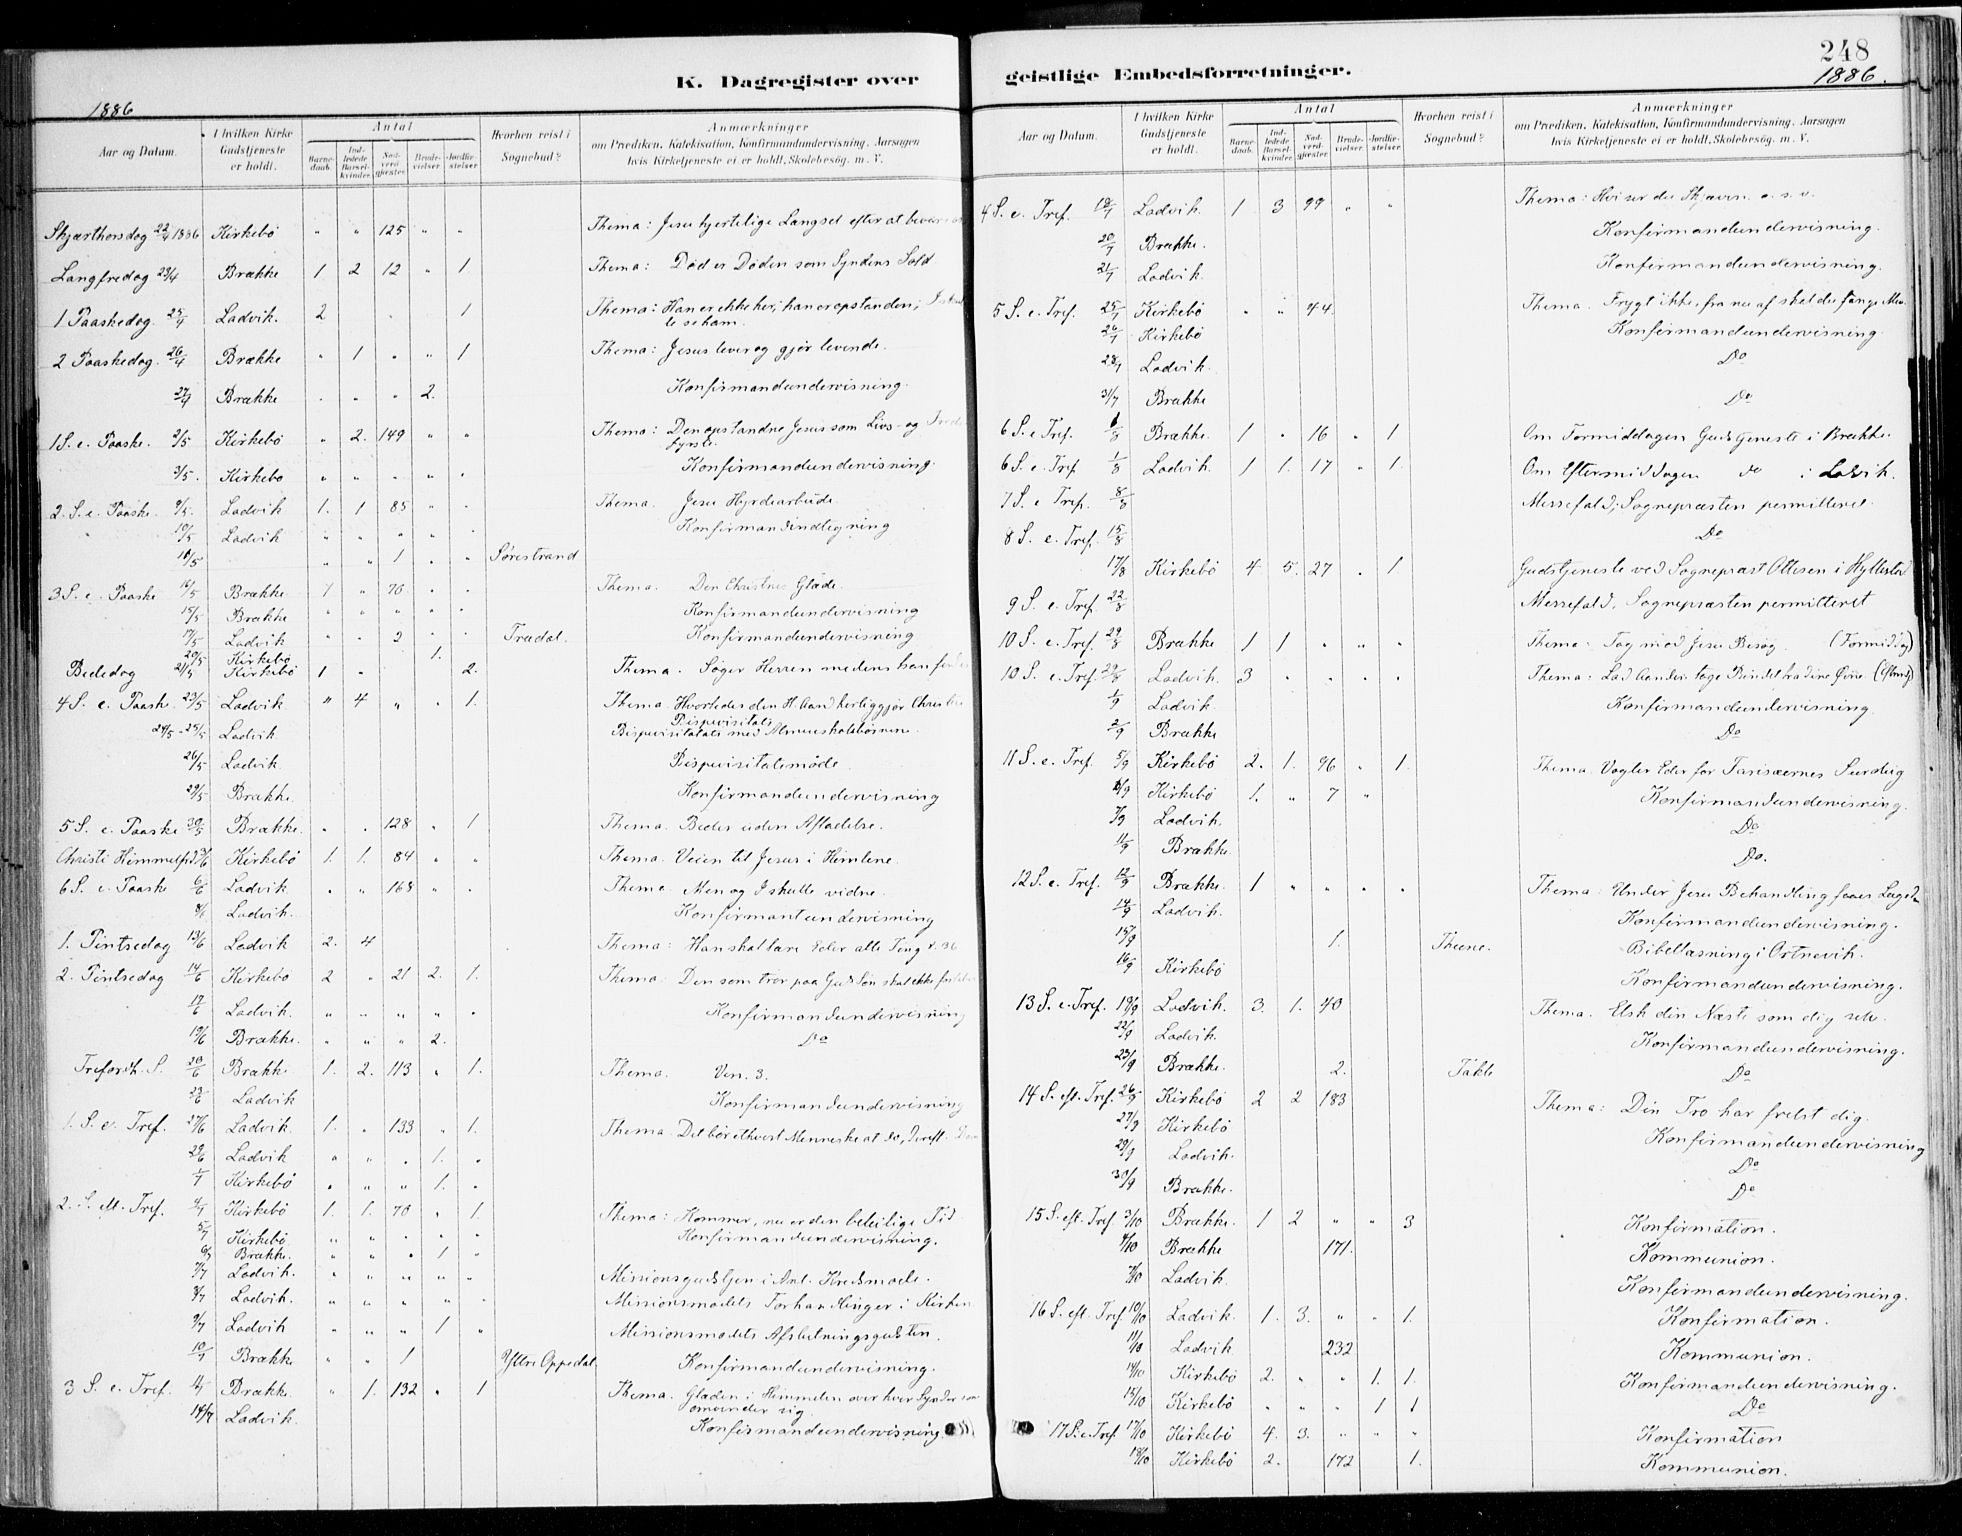 248
K. Dagregister over geistlige Embedsforretninger.
1886
1886.
Aar og Datum. I hvilken Kirke Gudstjeneste er holdt. Antal Barnedaab. Indledede Barselkvinder. Nadverdgjæster. Brudevielser. Jordfæstelser. Hvorhen reist i Sognebud? Anmærkninger om Prædiken, Katekisation, Konfirmandundervisning, Aarsagen hvis Kirketjeneste ei er holdt, Skolebesög, m. V.
Skjærthorsdag 22/4 1886 Kirkebö " " 125 " " Thema: Jesu hjertelige Langsel efter at
Langfredag 23/4 Brække 1 2 12 " 1 Thema: Död er Döden som Syndens Sold
1 Paaskedag. 25/4 Ladvik. 2 1 Thema: Han er ikke her; han er opstanden;
te se ham.
2 Paaskedag. 26/4 Brække " 1 " " 1 Thema: Jesus lever og gjör levende.
27/4 Brække . " " 2. Konfirmandundervisning.
1 S. e. Paaske. 2/5 Kirkebö " 2. 149 " " Thema: Den opstandne Jesus som Livs- og
fyrste.
3/5. Kirkebö " " " " " Konfirmandundervisning.
2. S. e. Paaske. 9/5. Ladvik 1. 1 85 " " Thema. Jesu Hyrdearbeide.
10/5 Ladvik " " " " " Konfirmandindlegning
10/5 " " 1 " " Sörestrand
3 S. e. Paaske 16/5 Brække 1 " 76 " " Thema. Den Christnes Glæde
15/5 Brække " " " " " Konfirmandundervisning
17/5 Ladvik " " 2 " " Tradal. Konfirmandundervisning
20/5 Kirkebö 1.
Bededag 21/5 Kirkebö 1 " 2. Thema. Söger Herren medens han
4 S. e. Paaske 23/5 Ladvik " 4 " " 1. Thema. Hvorledes den H. Aand herliggjör
24/5-25/5 Ladvik Bispevisitats
Bispevisitats med Almueskolebörnene.
26/5 Ladvik. Bispevisitatsmöde.
29/5 Brække. Konfirmandundervisning
5 S. e. Paaske 30/5 Brække. " . 128 " 1 Thema. Beder uden Afladelse.
Christi Himmelf. 3/6 Kirkebö 1. 1. 84 " " Thema. Veien til Jesus i Himlene.
6 S. e. Paaske 6/6 Ladvik " " 168 " " Thema. Men og I skulle vidne.
8/6 Ladvik. Konfirmantundervisning
1. Pintsedag 13/6 Ladvik 2. 4 Thema: Han skal lære Eder alle Ting v. 36
2. Pintsedag 14/6 Kirkebö 2 " 21 2. 1. Thema: Den som tror paa Guds Sön skal ikke
17/6 Ladvik. " " " " " Konfirmandundervisning
19/6 Brække. " " " 2. Do
Treforih. S. 20/6 Brække 1. 2. 113 " 1. Thema. Ven. 3.
23/6 Ladvik Konfirmandundervisning
1. S. e. Tref. 27/6 Ladvik. 1. " 133 " 1. Thema. Det bör ethvert Menneske at dö, dereft.
29/6 Ladvik " " " 1. "
1/7 Kirkebö " " " 1. "
2. S. eft. Tref. 4/7 Kirkebö 1. 1. 70 " 1. Thema: Kommer, nu er den beleilige Tid.
5/7 Kirkebö " " " " " Konfirmandundervisning.
6/7 Brække. " " " 1 "
7/7 Ladvik. " " " " " Missionsgudstjen i Anl. Kredsmöde.
8/7 Ladvik. " " " " " Missionsmödets Forhandlinger i Kirken
9/7 Ladvik " " " 1 " Missionsmödets Afslutningsgudstjen.
10/7 Brække " " 1 Yttre Oppedal. Konfirmandundervisning.
3 S. e. Tref. 11/7 Brække. " 1. 132 " 1 Thema. Glæden i Himmelen over hver Synder som
omvender sig
14/7 Ladvik. Konfirmandundervisning.
Aar og Datum. I hvilken Kirke Gudstjeneste er holdt. Antal Barnedaab. Indledede Barselkvinder. Nadverdgjæster. Brudevielser. Jordfæstelser. Hvorhen reist i Sognebud? Anmærkninger om Prædiken, Katekisation, Konfirmandundervisning, Aarsagen hvis Kirketjeneste ei er holdt, Skolebesög, m. V.
4 S. e. Tref. 18/7 Ladvik. 1 3 99 " " Thema: Hvi ser du Skjæven o. s. v.
20/7 Brække. Konfirmandundervisning.
21/7 Ladvik. Konfirmandundervisning.
5 S. e. Tref. 25/7 Kirkebö " " 44. Thema. Frygt ikke, fra nu af skal du fange Men.
26/7 Kirkebö Konfirmandundervisning.
28/7 Ladvik. Do
31/7 Brække Do
6 S. e Tref. 1/8 Brække. 1 " 16 " 1 Om Formiddagen Gudstjeneste i Brække.
6 S. e. Tref 1/8 Ladvik. 1 1. 17 " 1. Om Eftermiddagen do i Ladvik.
7 S. e Tref. 8/8 Messefald; Sognepræsten permitteret.
8 S. e. Tref. 15/8 Do
17/8 Kirkebö 4 5. 27 . 1. Gudstjeneste ved Sognepræst Ottesen i Hyllestad
9 S. e. Tref. 22/8 Messefald. Sognepræsten permitteret
10 S. e. Tref. 29/8 Brække 1 1 " " " Thema: Tag mod Jesu Besög. (Formidg)
10 S. e. Tref. 29/8 Ladvik. 3 " " " " Thema: Lad Aanden tage Bindet fra dine Öine. (Eftmdg)
1/9 Ladvik. Konfirmandundervisning.
2/9 Brække Do
11 S. e. Tref. 5/9 Kirkebö 2. 1. 96 " 1. Thema. Vogter Eder for Farisæernes Surdeig
6/9 Kirkebö 1. " 7 " Konfirmandundervisning.
7/9 Ladvik. Do
11/9 Brække. Do.
12 S. e. Tref. 12/9 Brække. 1 " " " " Thema: Under Jesu Behandling
14/9 Ladvik. Konfirmandundervisning.
15/9 1. Theene. Bibellæsning i Ortnevik.
16/9 Kirkebö Konfirmandundervisning.
13 S. e. Tref. 19/9 Ladvik. 3. 1. 40 Thema. Elsk din Næste som dig selv.
22/9 Ladvik. Konfirmandundervisning.
23/9 Brække. 2. Takle Do
14 S. eft. Tref. 26/9 Kirkebö 2 2 183 Thema: Din Tro har frelst dig.
27/9 Kirkebö Konfirmandundervisning
29/9 Ladvik. Do
30/9 Brække. Do
15 S. eft. Tref. 3/10 Brække. 1 2 " " 3 Konfirmation.
4/10 Brække 171. Kommunion.
7/10 Ladvik. Konfirmandundervisning.
16 S. eft. Tref. 10/10 Ladvik. 1. 3. " " 1. Konfirmation.
11/10 Ladvik. 232 Kommunion.
14/10 Kirkebö 2. " " 1. 1. Konfirmandundervisning.
15/10 Kirkebö " " " 1 1 Do
17 S. e. Tref 17/10 Kirkebö 4. 3. " " " Konfirmation
18/10 Kirkebö 2. 172 1. Kommunion.